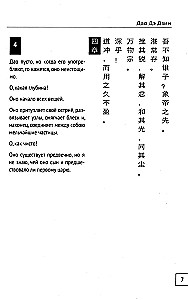 Дао Дэ Дзин
4
Дао пусто, но когда его употребляют, то кажется, оно неистощимо.
О, какая глубина!
Оно начало всех вещей.
Оно притупляет свой острий, развязывает узлы, смягчает блеск и, наконец, соединяет между собою мельчайшие частицы.
О, как чисто!
Оно существует предвечно, но я не знаю, чей оно сын и предшествовало ли первому царю.
四章
道冲，而用之久不盈。
深乎！
万物宗。
挫其锐，解其忿，和其光，同其尘。
湛常存。
吾不知识子？象帝之先。
7